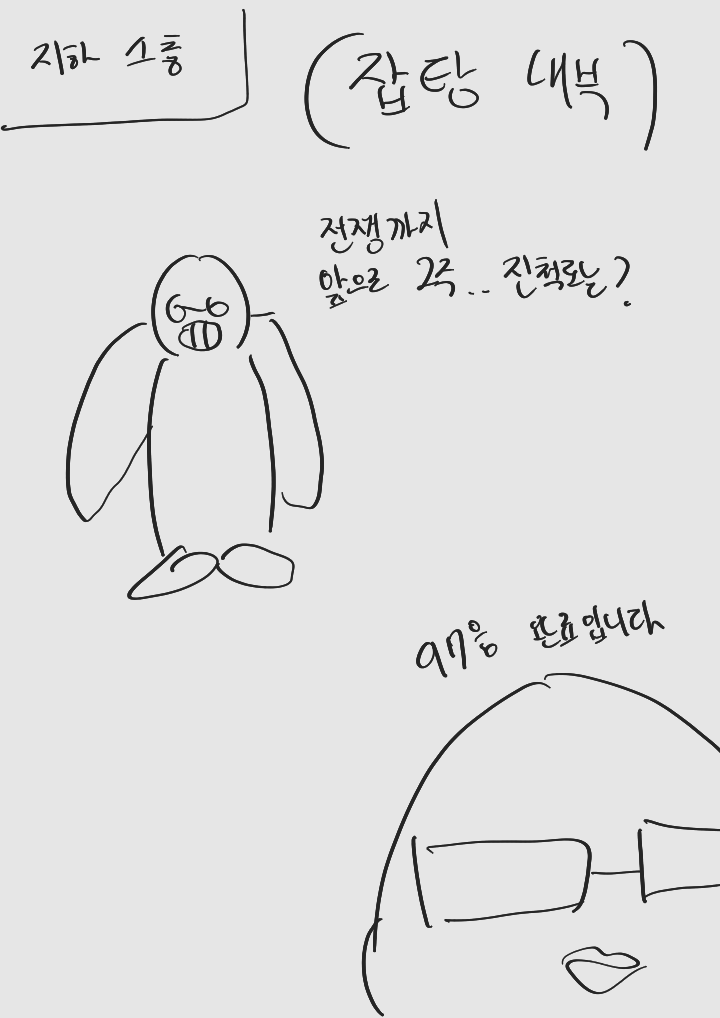 지하 소흥
(잡탕 대북)
전쟁까지
앞으로 2주.. 진척로는?
97응 완료입니다